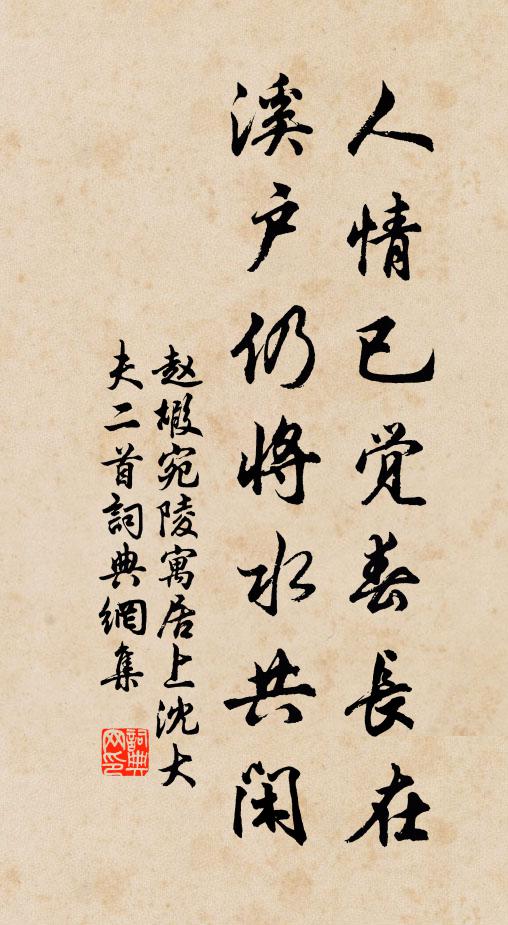 人情已觉春長在
溪户仍将水共闲
赵嘏宛陵寓居上沈大
夫二首詞典網集
詞典网印